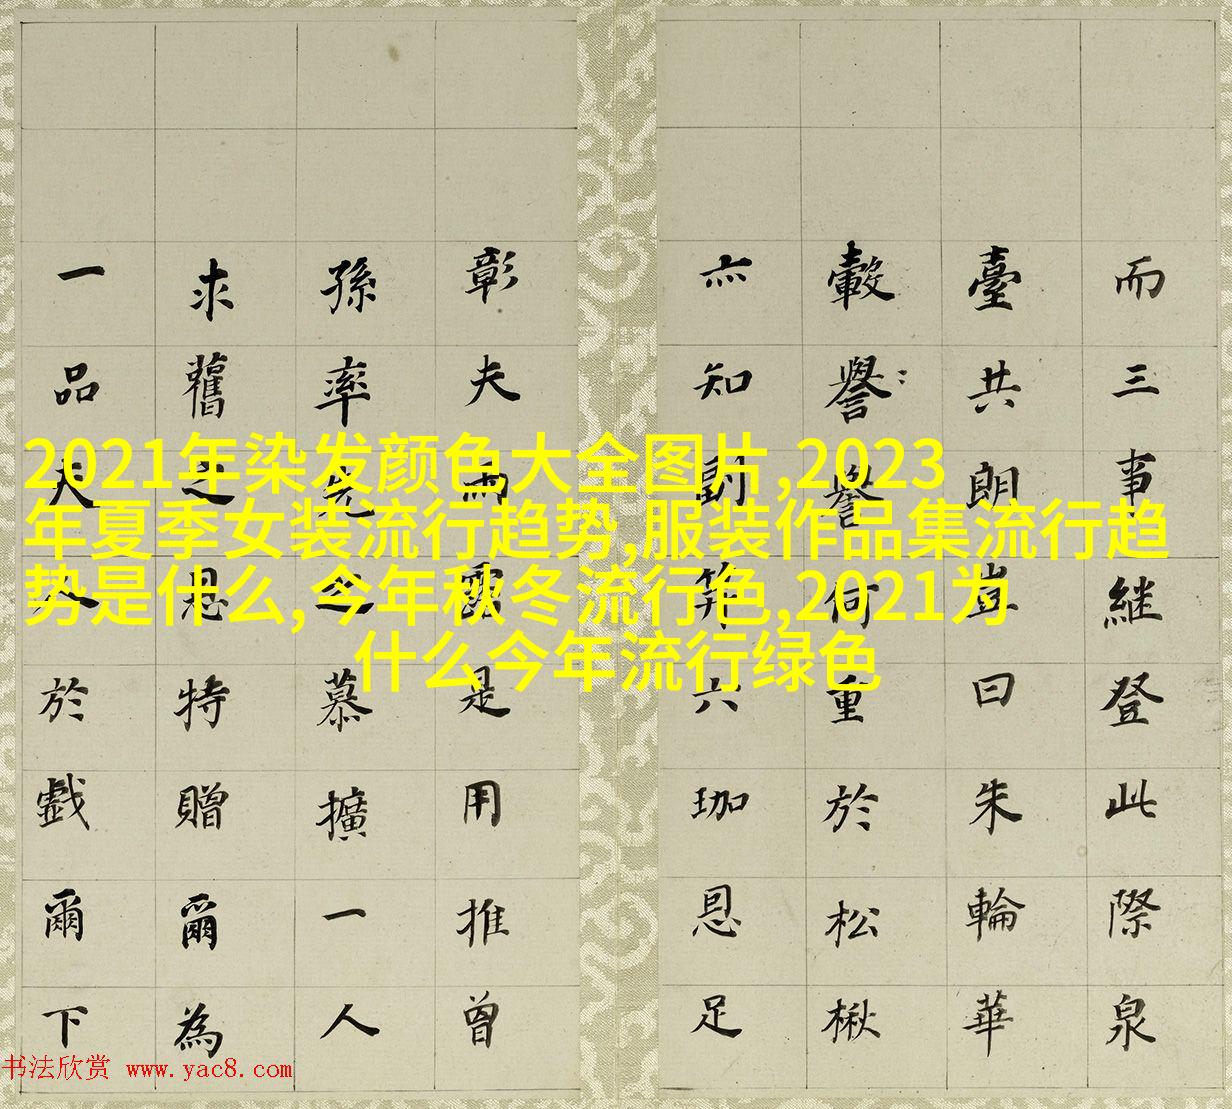 而三事繼登此際泉
臺共朗豈曰朱輪華
轂譽譽何重於松楸
亦知副笄六珈恩足
彰夫雨露是用推曾
孫率先之慕擴一人
求舊之恩特贈爾為
一品夫人於戲爾下
2021年染发颜色大全图片,2023
年夏季女装流行趋势,服装作品集流行趋
势是什么,今年秋冬流行色,2021为
什么今年流行绿色
书法欣赏 www.yac8.com